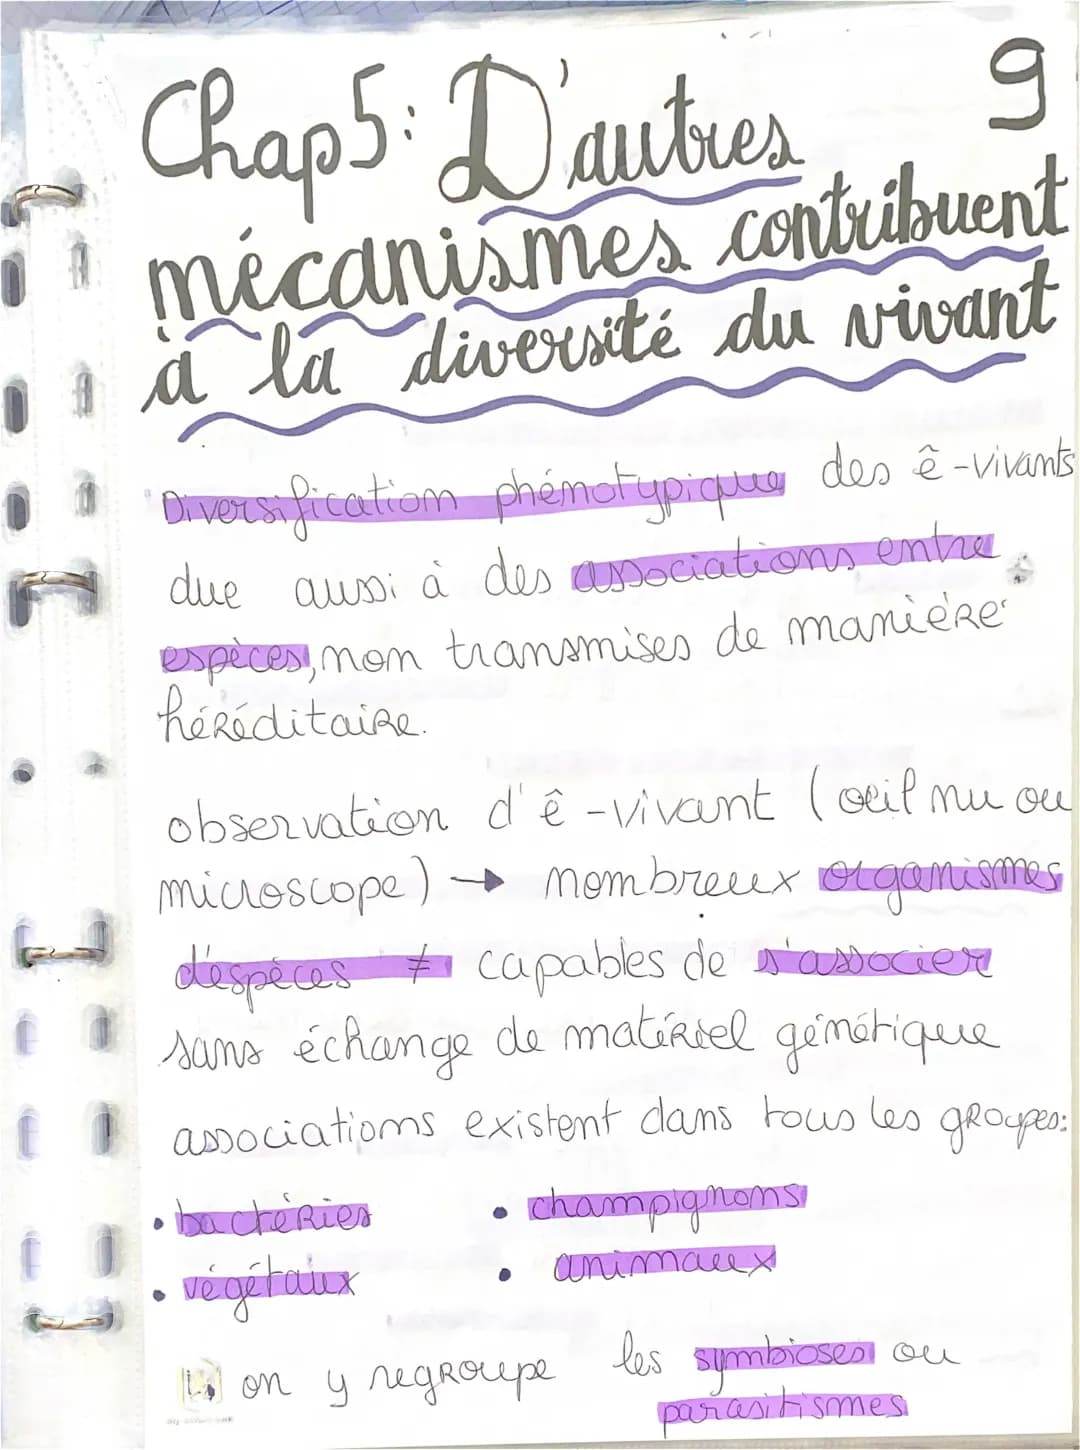 9
Chap 5 : D'autres
mécanismes contribuent
à la diversité du vivant
Diversification phénotypique des ê-vivants
due aussi à des associations entre
espèces, non transmises de manière
héréditaire.
observation d'ê-vivant (œil nu ou
microscope) → nombreux organismes
d'espèces ≠ capables de s'associer
sans échange de matériel génétique
associations existent dans tous les groupes:
• bactéries • champignons
• végétaux • animaux
↳ on y regroupe les symbioses ou
parasitismes